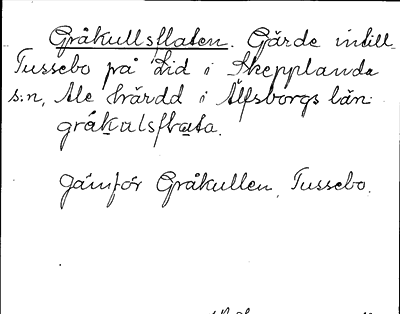 Gråkullsflaten. Gärde intill
Tussebo på Lid i Skepplanda
s:n, Ale härad i Älfsborgs län.
gråkulsflata.
Jämför Gråkullen, Tussebo.